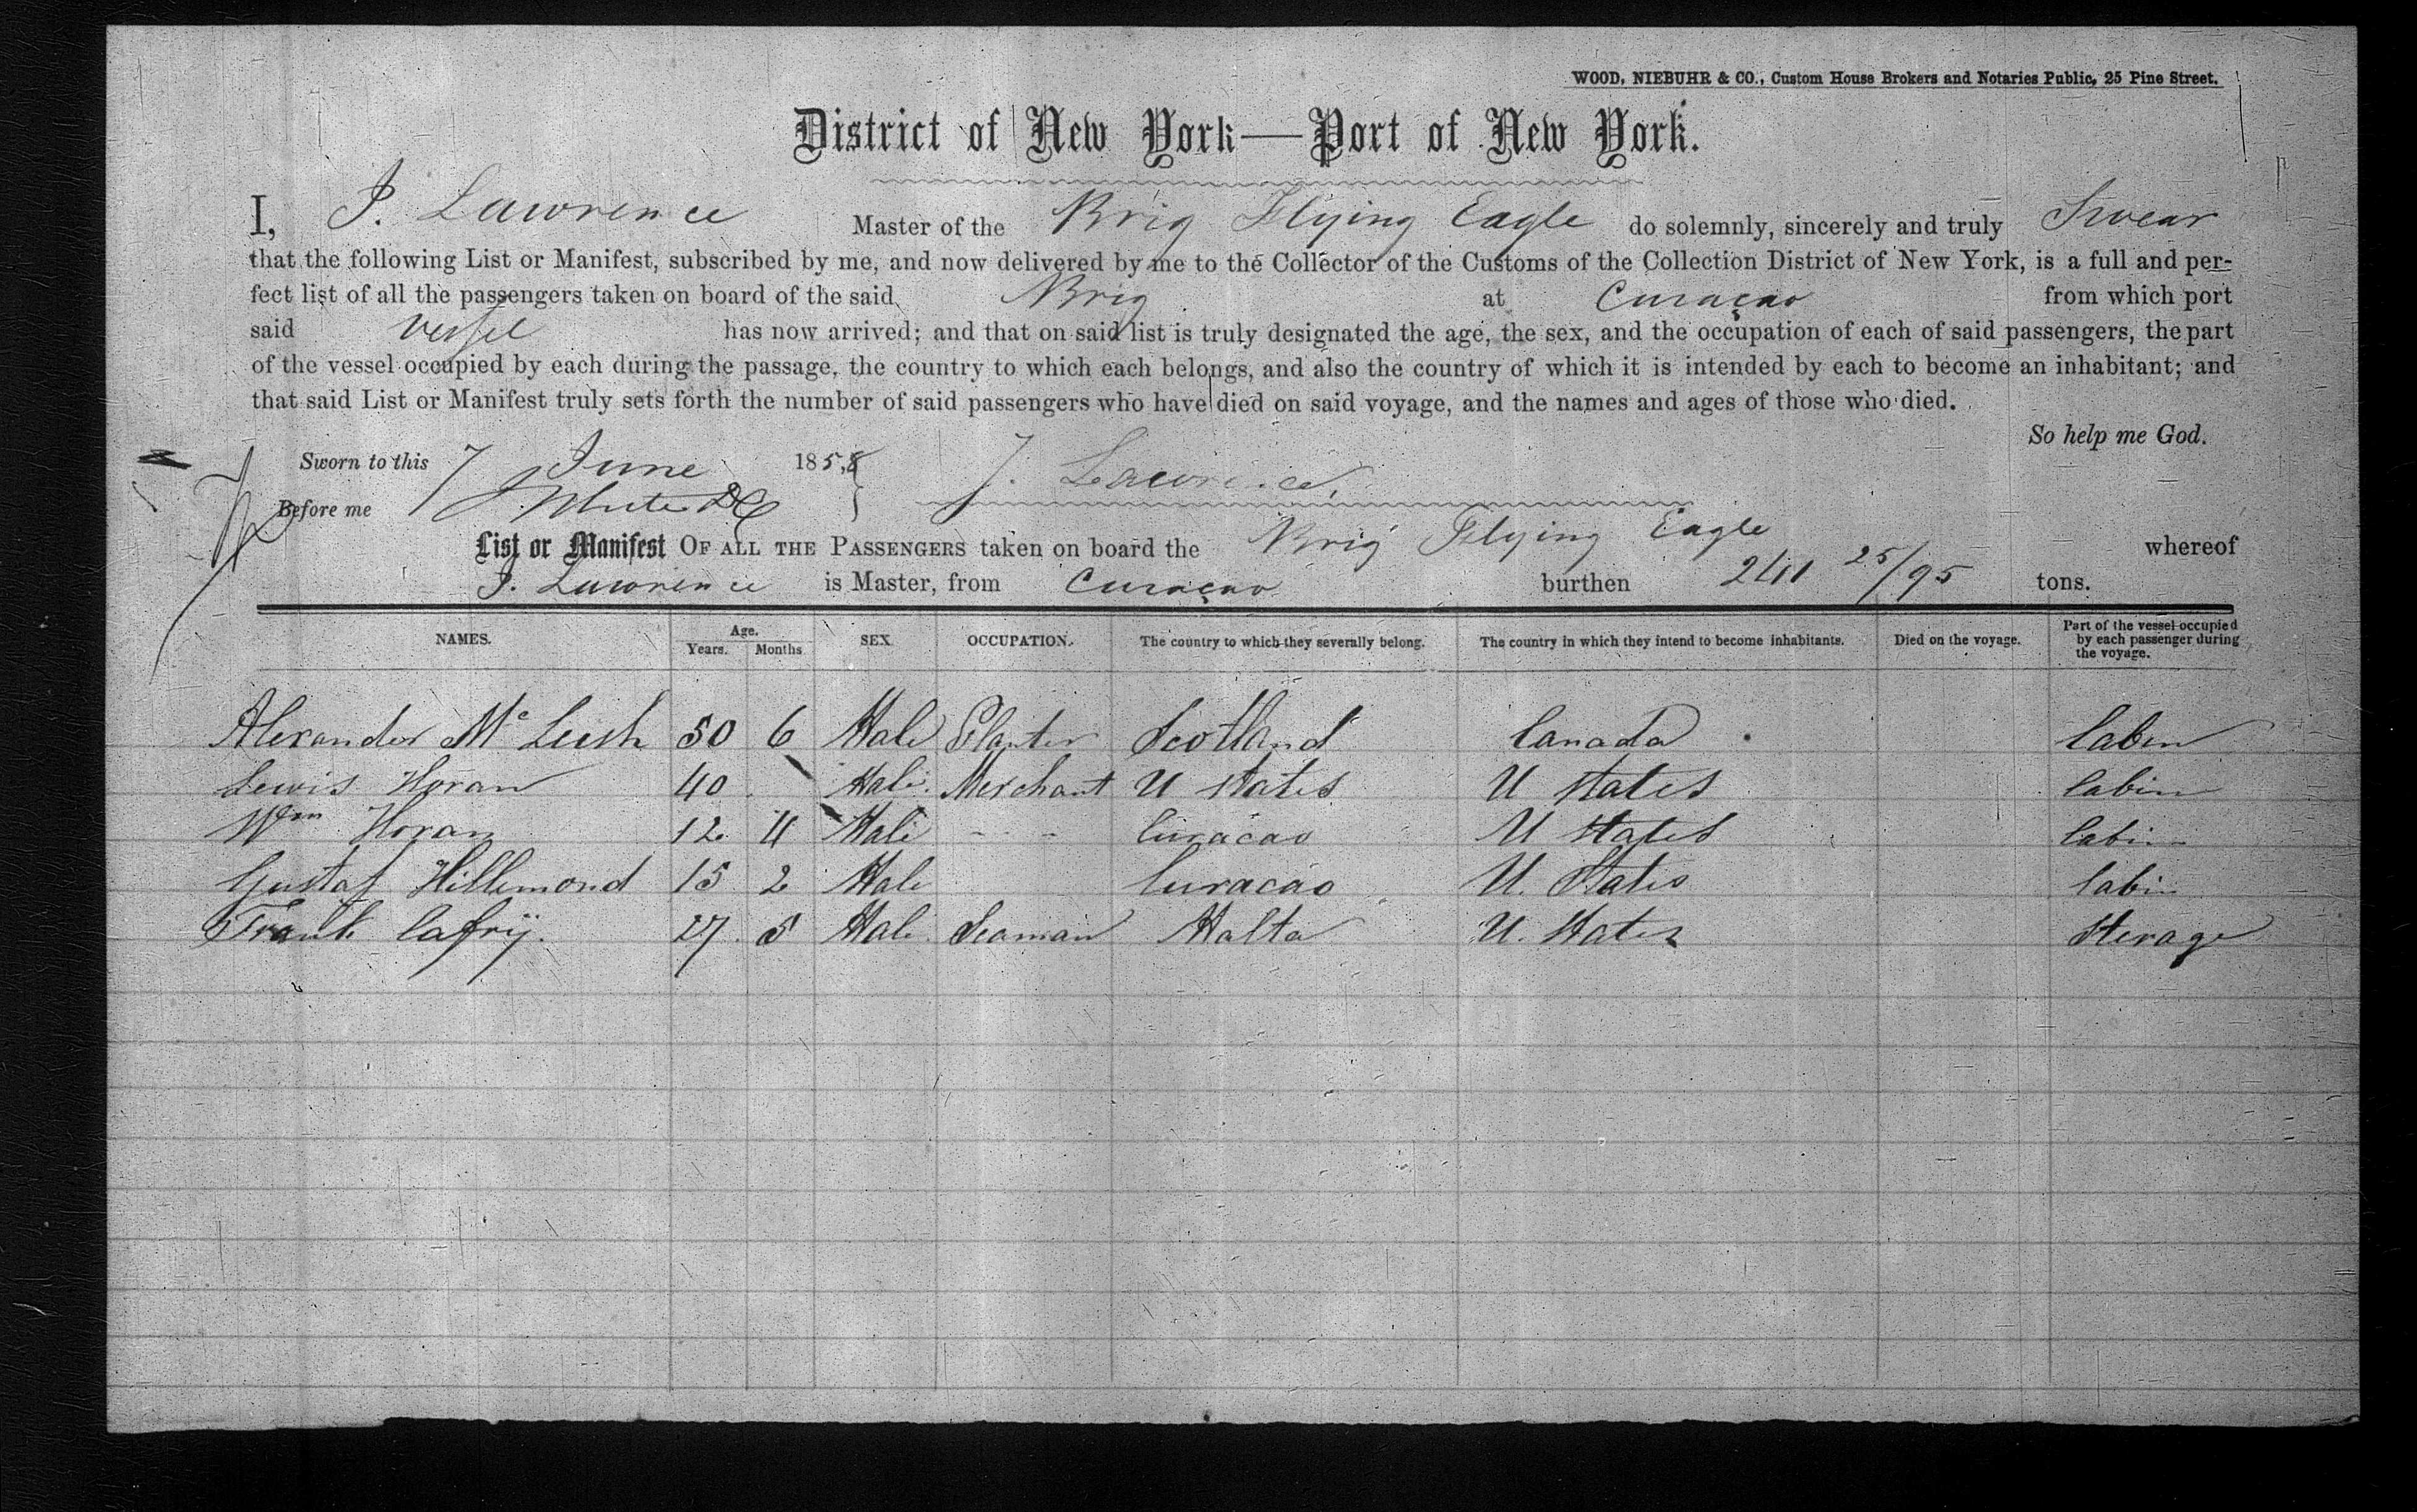 WOOD, NIEBUHR & CO., Custom House Brokers and Notaries Public, 25 Pine Street.
District of New York—Port of New York.
I, J. Lawrence Master of the Brig Flying Eagle do solemnly, sincerely and truly Swear
that the following List or Manifest, subscribed by me, and now delivered by me to the Collector of the Customs of the Collection District of New York, is a full and per-
fect list of all the passengers taken on board of the said Brig at Curaçao from which port
said Vessel has now arrived; and that on said list is truly designated the age, the sex, and the occupation of each of said passengers, the part
of the vessel occupied by each during the passage, the country to which each belongs, and also the country of which it is intended by each to become an inhabitant; and
that said List or Manifest truly sets forth the number of said passengers who have died on said voyage, and the names and ages of those who died.
So help me God.
Sworn to this 7 June 1858 J. Lawrence
Before me
List or Manifest OF ALL THE PASSENGERS taken on board the Brig Flying Eagle whereof
J. Lawrence is Master, from Curaçao burthen 25/95 tons.
NAMES. Age. Years. Months SEX. OCCUPATION. The country to which they severally belong. The country in which they intend to become inhabitants. Died on the voyage. Part of the vessel occupied by each passenger during the voyage.
Alexander Mc Leish 50 6 Male Planter Scotland Canada Cabin
Lewis Horan 40 Male Merchant U States U States Cabin
Wm Horan 12 11 Male - - - Curacao U States Cabin
Gustaf Hillemond 15 2 Male Curacao U. States Cabin
Frank Cafrij. 27 5 Male Seaman Malta U. States Sterage